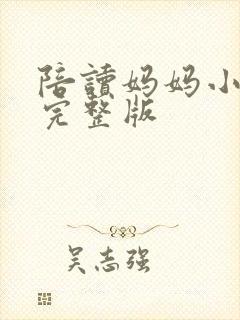 陪讀妈妈小
完整版
吴志强